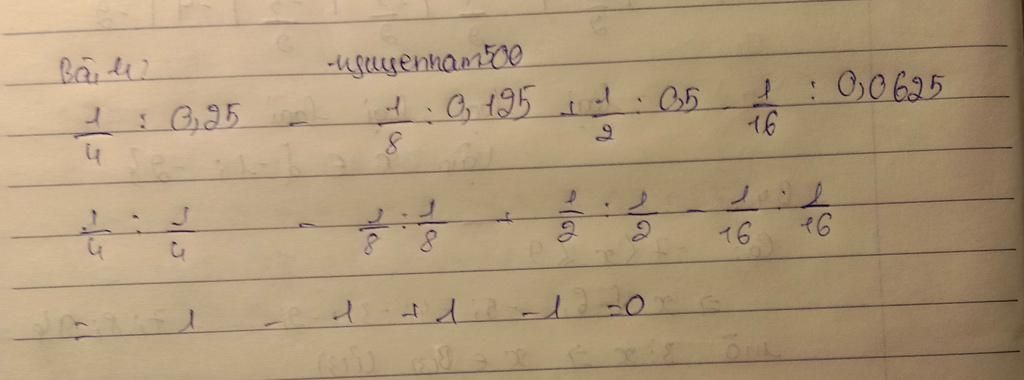 Bài 4: nguyennam500
1/4 : 0,25 - 1/8 : 0,125 + 1/2 : 0,5 - 1/16 : 0,0625
1/4 : 1/4 - 1/8 : 1/8 + 1/2 : 1/2 - 1/16 : 1/16
= 1 - 1 + 1 - 1 = 0